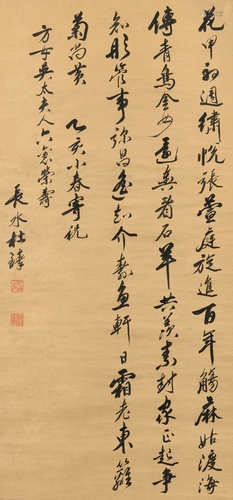 花甲初週繡帨張萱庭旋進百年觴麻姑渡海
傳青鳥金母還真石羊共羨素封家正起爭
知彤管事彌昌遙知介壽魚軒日霜老東籬
菊尚黃 乙亥小春寄祝
方母吳太夫人六袠榮壽
長水杜臻